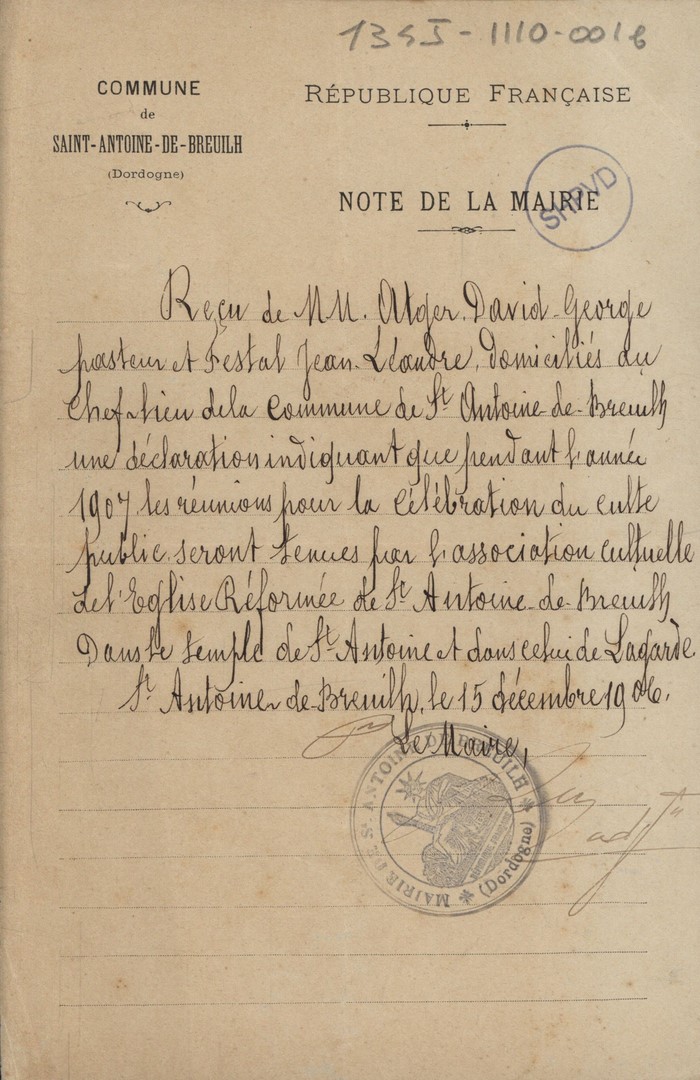 1345-1110-0016
COMMUNE
de
SAINT-ANTOINE-DE-BREUILH
(Dordogne)
RÉPUBLIQUE FRANÇAISE
NOTE DE LA MAIRIE
SHPVD
Reçu de MM. Alger David-George
pasteur et Festal Jean-Léandre, domiciliés au
Chef-lieu de la Commune de St Antoine-de-Breuilh
une déclaration indiquant que pendant l'année
1907, les réunions pour la célébration du culte
public seront tenues par l'association cultuelle
de l'Eglise Réformée de St Antoine-de-Breuilh
Dans le temple de St Antoine et dans celui de Lagarde
St Antoine-de-Breuilh, le 15 décembre 1906.
Le Maire,
MAIRIE DE ST ANTOINE DE BREUILH
(Dordogne)